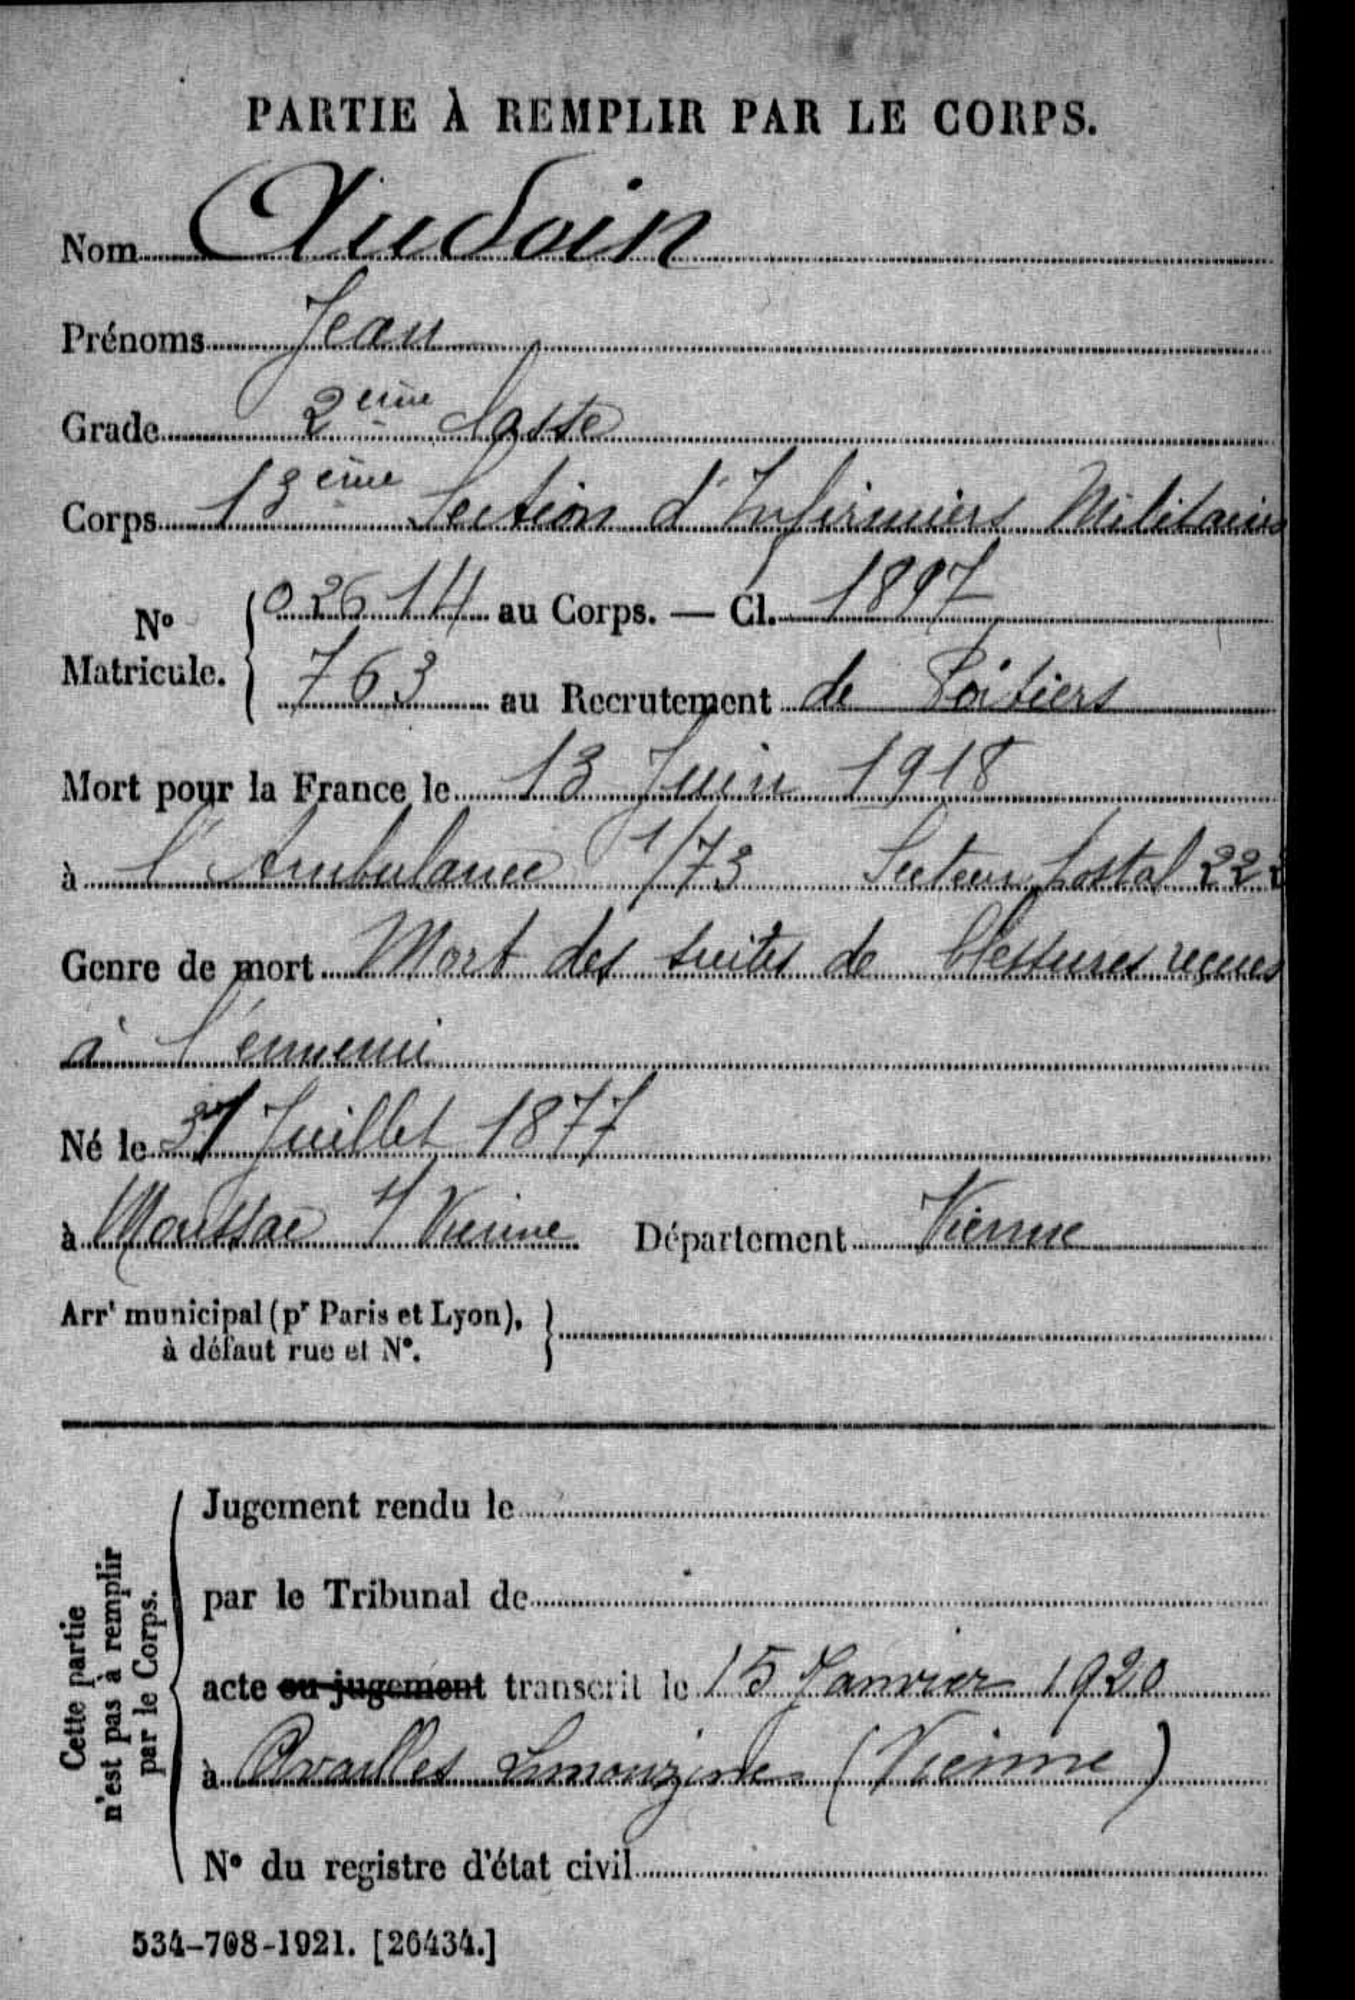 PARTIE À REMPLIR PAR LE CORPS.
Nom Audoin
Prénoms Jean
Grade 2ème classe
Corps 13ème Section d'Infirmiers Militaires
No Matricule. 02614 au Corps. — Cl. 1897
763 au Recrutement de Poitiers
Mort pour la France le 13 Juin 1918
à l'Ambulance 1/73 Secteur postal 222
Genre de mort Mort des suites de blessures reçues
à l'ennemi
Né le Juillet 1877
à Moussac s/ Vienne Département Vienne
Arrt municipal (pr Paris et Lyon),
à défaut rue et N°.
Cette partie
n'est pas à remplir
par le Corps.
Jugement rendu le
par le Tribunal de
acte ou jugement transcrit le 15 Janvier 1920
à Availles Limouzine (Vienne)
N° du registre d'état civil
534-708-1921. [26434.]